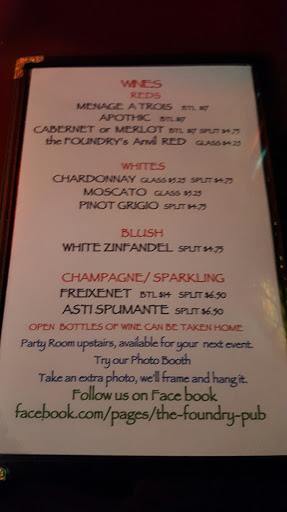 WINES
REDS
MENAGE A TROIS BTL $17
APOTHIC BTL $17
CABERNET or MERLOT BTL $17 SPLIT $4.75
the FOUNDRY's Anvil RED GLASS $4.25
WHITES
CHARDONNAY GLASS $5.25 SPLIT $4.75
MOSCATO GLASS $5.25
PINOT GRIGIO SPLIT $4.75
BLUSH
WHITE ZINFANDEL SPLIT $4.75
CHAMPAGNE/ SPARKLING
FREIXENET BTL $14 SPLIT $6.50
ASTI SPUMANTE SPLIT $6.50
OPEN BOTTLES OF WINE CAN BE TAKEN HOME
Party Room upstairs, available for your next event.
Try our Photo Booth
Take an extra photo, we'll frame and hang it.
Follow us on Face book
facebook.com/pages/the-foundry-pub